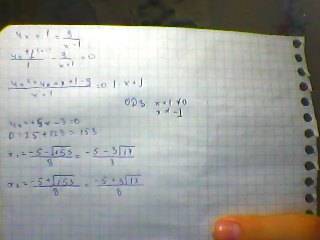 4x + 1 = 9/x-1
/1 - 9/x+1 = 0
4x²+4x+x+1-9/x+1 = 0 | · x+1
ОДЗ x+1≠0
x≠-1
D=25+128=153
x₁= -5-√153/8 = -5-3√17/8
x₂= -5+√153/8 = -5+3√17/8